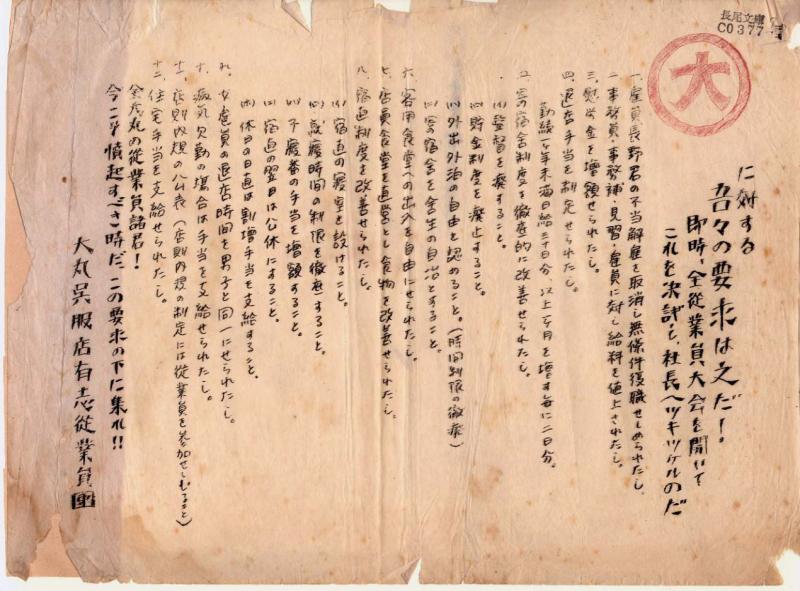 長尾文庫
C0377
大
に対する
吾々の要求は之だ!
即時、全従業員大会を開いて
これを決議し、社長へツキツケルのだ
一、雇員長野君の不当解雇を取消し無條件復職せしめられたし。
二、事務員・事務補・見習・雇員に対し給料を値上されたし。
三、慰労金を増額せられたし。
四、退店手当を制定せられたし。
勤続一ヶ年未満日給三十日分 以上一ヶ月を増す毎に二日分。
五、寄宿舎制度を徹底的に改善せられたし。
(イ) 監督を廃すること。
(ロ) 貯金制度を廃止すること。
(ハ) 外出外泊の自由を認めること。(時間制限の撤廃)
(ニ) 寄宿舎を舎生の自治とすること。
六、客用食堂への出入を自由にせられたし。
七、店員食堂を直営とし食物を改善せられたし。
八、宿直制度を改善せられたし。
(イ) 宿直の寝室を設けること。
(ロ) 就寝時間の制限を徹底すること。
(ハ) 不寝番の手当を増額すること。
(ニ) 宿直の翌日は公休にすること。
(ホ) 休日の日直は割増手当を支給すること。
九、女雇員の退店時間を男子と同一にせられたし。
十、病気欠勤の場合は手当を支給せられたし。
十一、店則内規の公表(店則内規の制定には従業員を参加せしむること)
十二、住宅手当を支給せられたし。
全大丸の従業員諸君!
今こそ憤起すべき時だ、この要求の下に集れ!!
大丸呉服店有志従業員團